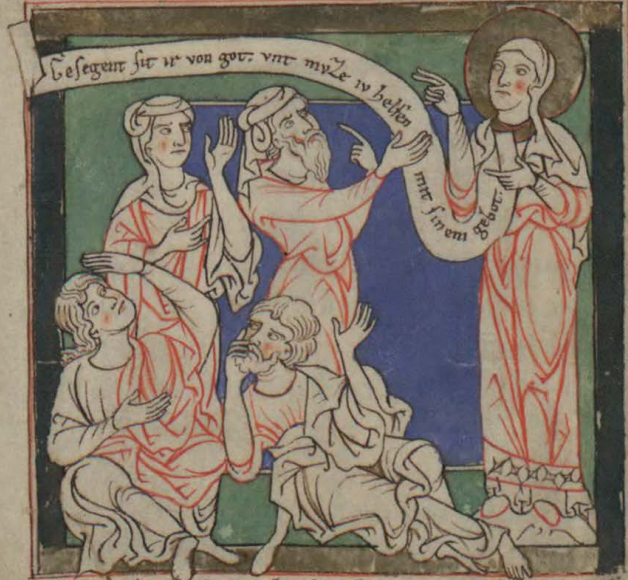 Gesegent sit ir von got. vnt myͤze iv helfen
mit sinem gebot.